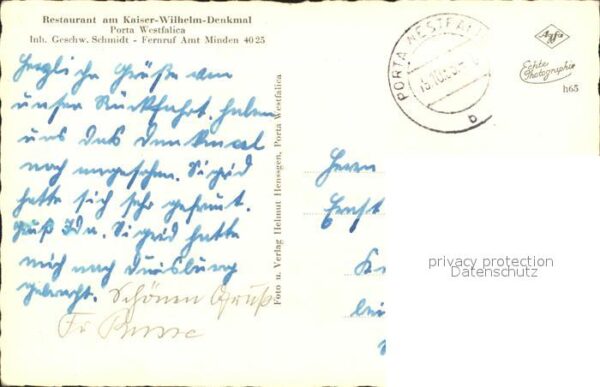 Restaurant am Kaiser-Wilhelm-Denkmal
Porta Westfalica
Inh. Geschw. Schmidt - Fernruf Amt Minden 4025
Herzliche Grüße von
unser Rückfahrt. haben
uns das Denkmal
noch angesehen. Sigrid
hatte sich sehr gefreut.
Gruß Ida. Sigrid hatte
mich nach Duisburg
gebracht. Schönen Gruß
Fr
Foto u. Verlag Helmut Henssgen, Porta Westfalica
PORTA WESTFALICA
b
Agfa
Echte
Photographie
h65
Herrn
Ernst
bei
privacy protection
Datenschutz